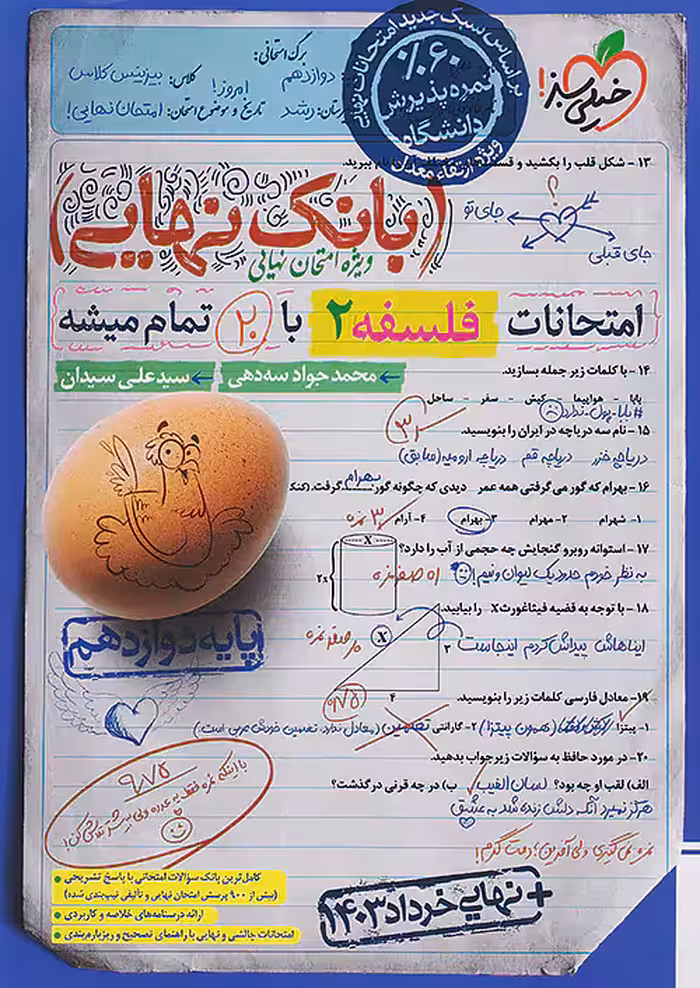 برگ امتحانی:
دوازدهم کلاس: بیزینس کلاس
رشد امروز! تاریخ و موضوع امتحان: امتحان نهایی!
براساس سبک جدید امتحانات نهایی
۶۰٪
نمره‌پذیرش
دانشگاه
ویژه ارتقاء معدل
خیلی سبز!
۱۳ - شکل قلب را بکشید و نام ببرید.
؟
جای تو
جای قبلی
(بانک نهایی)
ویژه امتحان نهایی
امتحانات فلسفه ۲ با ۲۰ تمام میشه
محمد جواد سه‌دهی
سیدعلی سیدان
۱۴ - با کلمات زیر جمله بسازید.
بابا - هواپیما - کیش - سفر - ساحل
#بابا-پول-ندارد
۱۵ - نام سه دریاچه در ایران را بنویسید.
دریاچه خزر دریاچه قم دریاچه ارومیه (سابق)
۱۶ - بهرام که گور می گرفتی همه عمر دیدی که چگونه گور بهرام گرفت.
۱- شهرام ۲- مهرام ۳- بهرام ۴- آرام
۱۷ - استوانه روبرو گنجایش چه حجمی از آب را دارد؟
X
۲x
به نظر خودم حدود یک لیوان و نیم!
۱۸ - با توجه به قضیه فیثاغورث X را بیابید.
ایناهاش پیداش کردم اینجاست
X
۳
۴
پایه دوازدهم
۱۹- معادل فارسی کلمات زیر را بنویسید.
۱- پیتزا (همون پیتزا) ۲- گارانتی تضمین (معادل ندارد، تضمین خودش عربی است)
۲۰- در مورد حافظ به سؤالات زیر جواب بدهید.
الف) لقب او چه بود؟ لسان الغیب ب) در چه قرنی درگذشت؟
هرگز نمیرد آنکه دلش زنده شد به عشق
۹/۷۵
نمره نمی‌گیری ولی آفرین! دمت گرم!
کامل‌ترین بانک سؤالات امتحانی با پاسخ تشریحی
(بیش از ۹۰۰ پرسش امتحان نهایی و تألیفی تیپ‌بندی شده)
ارائه درسنامه‌های خلاصه و کاربردی
امتحانات چالشی و نهایی با راهنمای تصحیح و ریزبارم‌بندی
+ نهایی خرداد ۱۴۰۳